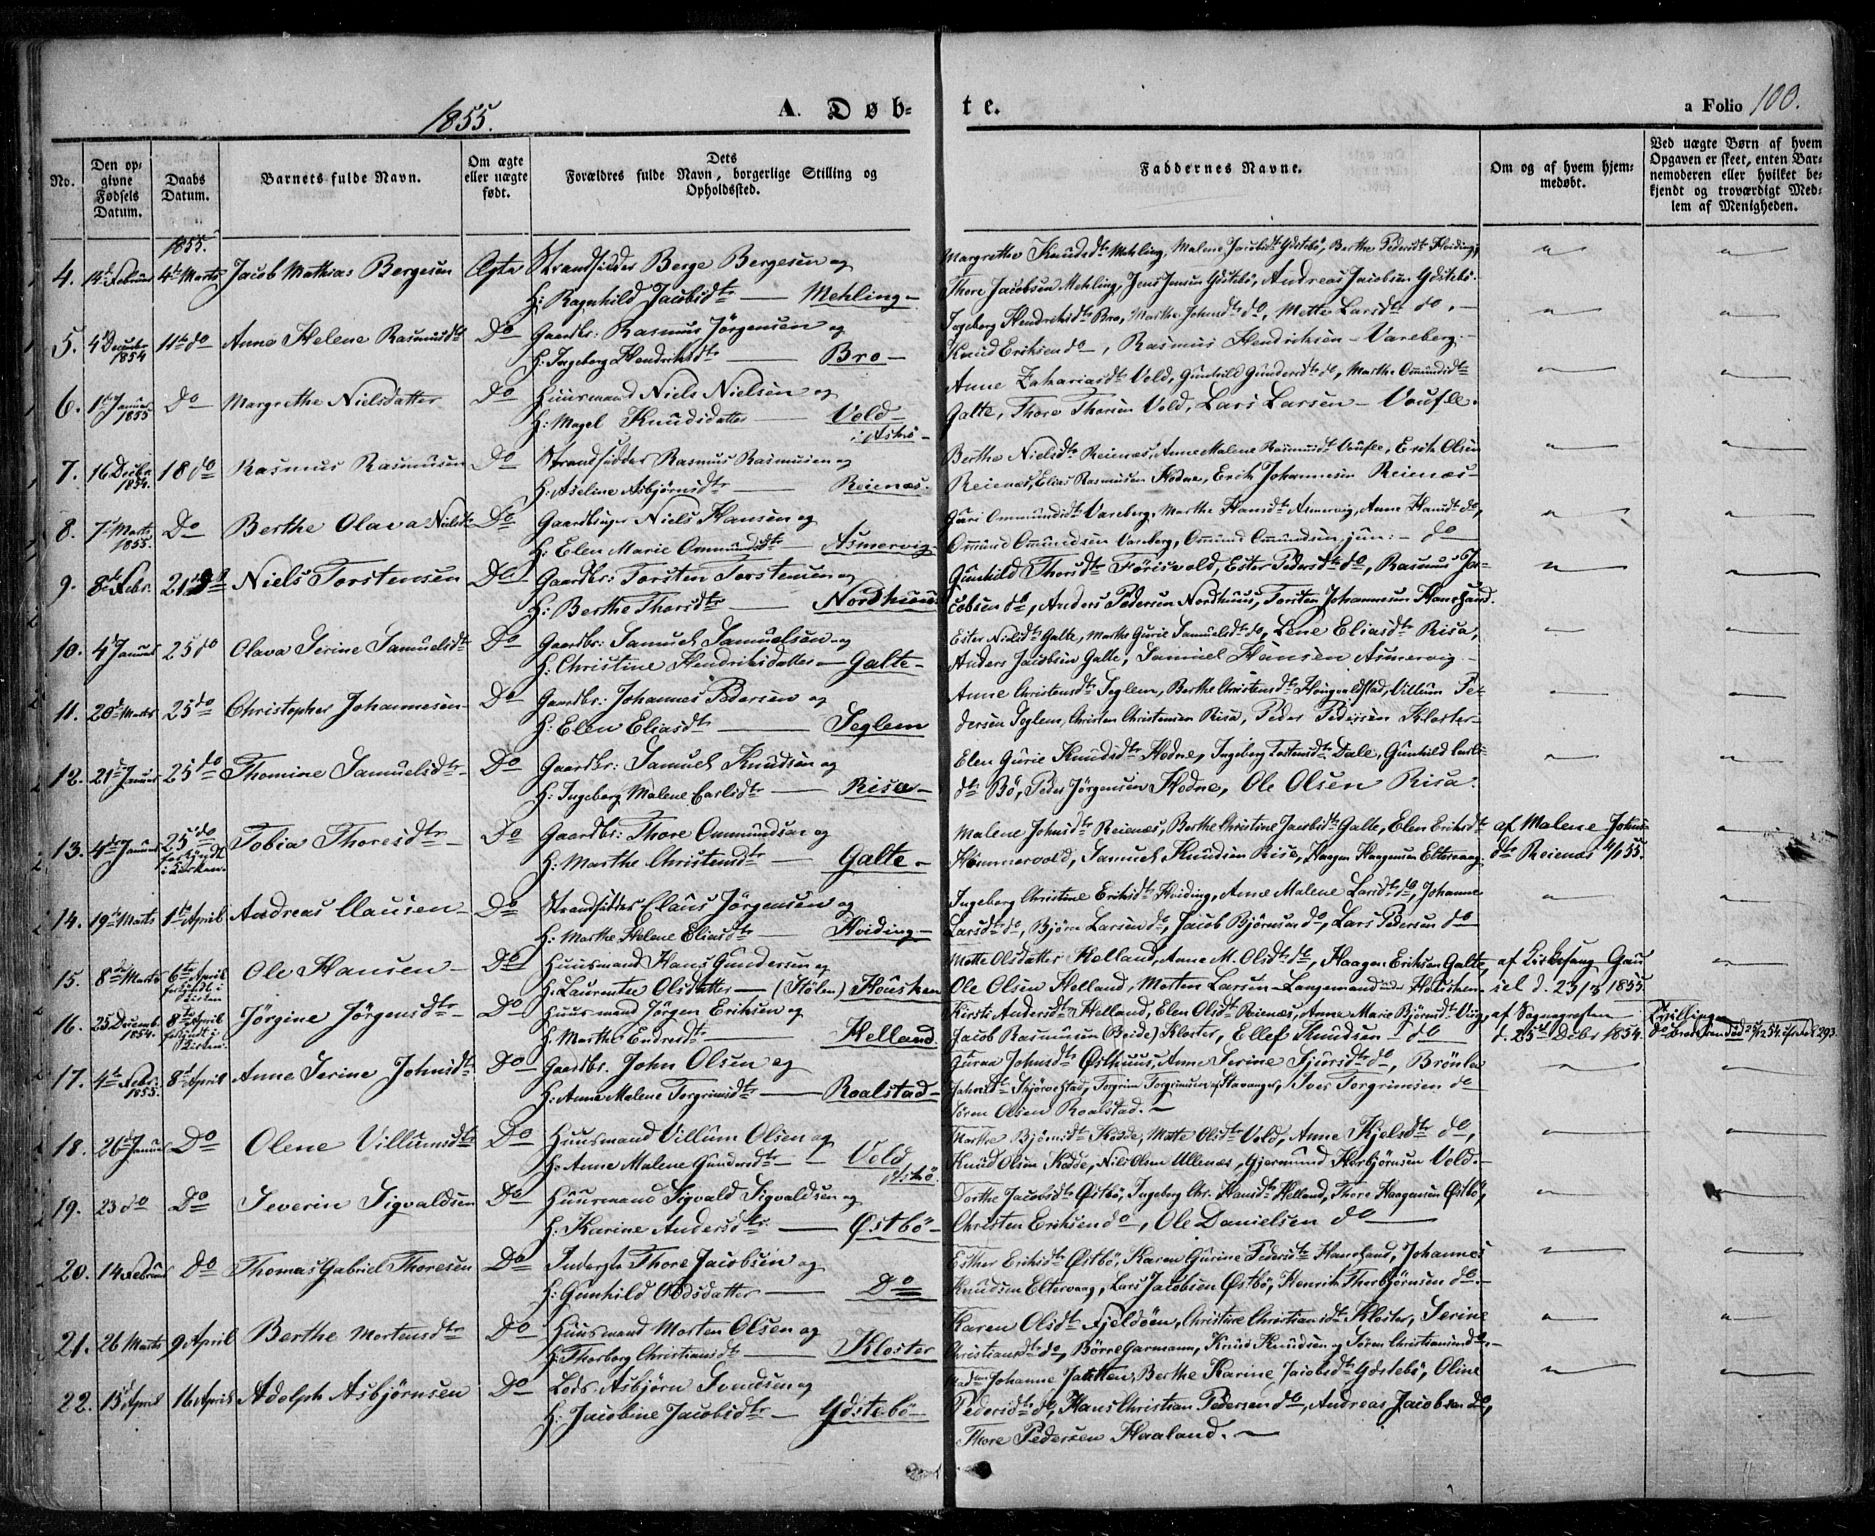 1855.
A. Døb-
te.
a Folio 100.
No.
Den op-
givne
Fødsels
Datum.
Daabs
Datum.
Barnets fulde Navn.
Om ægte
eller uægte
født.
Dets
Forældres fulde Navn, borgerlige Stilling og
Opholdssted.
Faddernes Navne.
Om og af hvem hjem-
medøbt.
Ved uægte Børn af hvem
Opgaven er skeet, enten Bar-
nemoderen eller hvilket be-
kjendt og troværdigt Med-
lem af Menigheden.
1855.
4. 14de Februar 4de Marts Jacob Mathias Bergesen Ægte Strandsidder Berge Bergesen og
H: Ragnhild Jacobsdtr — Mehling —
Margrethe Knudsdtr Mehling, Malene Jacobsdtr Ydstebö, Berthe Pedersdtr Hviding,
Thore Jacobsen Mehling, Jens Jensen Ydstebö, Andreas Jacobsen Ydstebö.
5. 4de December 1854 11te do Anne Helene Rasmusdtr Do Gaardbr: Rasmus Jörgensen og
H: Ingeborg Hendriksdtr — Bro —
Ingeborg Hendriksdtr Bro, Marthe Johnsdtr do, Mette Larsdtr do, —
Knud Eriksen do —, Rasmus Hendriksen — Vareberg. —
6. 1ste Januar 1855 Do Margrethe Nielsdatter Do Huusmand Niels Nielsen og
H: Magel Knudsdatter — Vold i Askö —
Anne Zahariasdtr Vold, Gunhild Gundersdtr do, Marthe Omundsdtr
Galte, Thore Thorsen Vold, Lars Larsen — Voufle.
7. 16 Decbr 1854. 18 do Rasmus Rasmusen Do Strandsidder Rasmus Rasmusen og
H: Aseline Asbjörnsdtr — Reienæs.
Berthe Nielsdtr Reienæs, Anne Malene Rasmusdtr Voufle, Erik Olsen
Reienæs, Elias Rasmusen Hodne, Erik Johannesen Reienæs —
8. 7de Marts 1855. Do Berthe Olava Nielsdtr Do Gaardbruger Niels Hansen og
H: Elen Marie Ommundsdtr — Asmervig —
Guri Ommundsdtr Vareberg, Marthe Hansdtr Asmervig, Anne Hansdtr do,
Ommund Ommundsen Vareberg, Ommund Ommundsen jun: — do
9. 8de Febr. 21 do Niels Torstensen Do Gaardbr: Torsten Torstensen og
H: Berthe Thorsdtr — Nordhuus
Gunhild Thorsdtr Förisvold, Ester Pedersdtr do, Rasmus Ja-
cobsen do, Anders Pedersen Nordhuus, Torsten Johannesen Haugland.
10. 4de Januar 25 do Olava Serine Samuelsdtr Do Gaardbr: Samuel Samuelsen og
H: Christine Hendriksdatter — Galte —
Ester Nielsdtr Galte, Marthe Gurie Samuelsdtr do, Lene Eliasdtr Risa,
Anders Jacobsen Galte, Samuel Hansen Asmervig —
11. 20de Marts 25 do Christopher Johannesen — Do Gaardbr: Johannes Pedersen og
H: Elen Eliasdtr — Seglem
Anne Christensdtr Seglem, Berthe Christensdtr Hougvaldstad, Villum Pe-
dersen Seglem, Christen Christensen Risa, Peder Pedersen Kloster —
12. 21de Januar 25 do Thomine Samuelsdtr — Do Gaardbr: Samuel Knudsen og
H: Ingeborg Malene Carlsdtr — Risa —
Elen Gurie Knudsdtr Hodne, Ingeborg Tostensdtr Dale, Gunhild Carls-
dtr Bö, Peder Jörgensen Hodne, Ole Olsen Risa.
13. 4de Januar 25 do forkyndt i Kirken. Tobia Thoresdtr — Do Gaardbr: Thore Ommundsen og
H: Marthe Christensdtr — Galte —
Malene Johnsdtr Reienæs, Berthe Christine Jacobsdtr Galte, Elen Eriksdtr
Hommervold, Samuel Knudsen Risa, Haagen Haagensen Eltervaag
af Malene Johns-
dtr Reienæs 4/1 55.
14. 19de Marts 1ste April Andreas Clausen — Do Strandsidder Claus Jörgensen og
H: Marthe Helene Eliasdtr — Hviding —
Ingeborg Christine Eriksdtr Hviding, Anne Malene Larsdtr do, Johanne
Larsdtr do, Björn Larsen do, Jacob Björnsen do, Lars Pedersen do
15. 8de Marts 6te April forkyndt i Kirken Ole Hansen — Do Huusmand Hans Gundersen og
H: Laurentze Olsdatter — (Stölen) Housken
Mette Olsdatter Helland, Anne M. Olsdtr do, Haagen Eriksen Galte,
Ole Olsen Helland, Morten Larsen Langemand under Housken
af Kirkesang: Gau-
sel d. 23/3 1855.
16. 25 Decemb. 1854. 8te April forkyndt i Kirken. Jörgine Jörgensdtr — Do Huusmand Jörgen Eriksen og
H: Marthe Endresdtr — Helland
Kirsti Andersdtr Helland, Elen Olsdtr Reienæs, Anne Marie Björnsdtr Viig,
Jacob Rasmusen (Beide) Kloster, Ellef Knudsen — do
af Sognepresten
d. 25de Debr 1854.
Tvilling
17. 4de Febr. 1855. 8de April Anne Serine Johnsdtr Do Gaardbr. John Olsen og
H: Anne Malene Torgrimsdtr — Roalstad —
Guroe Johnsdtr Östhuus, Anne Serine Sjursdtr do, Brönla
Jahnsdtr Skjörvestad, Torgrim Torgrimsen af Stavanger, Ives Torgrimsen do
Sören Olsen Roalstad. —
18. 26de Januar Do Olene Villumsdtr Do Huusmand Villum Olsen og
H: Anne Malene Gundersdtr — Vold i Askö.
Marthe Björnsdtr Kodde, Mate Olsdtr Vold, Anne Kjelsdtr do,
Knud Olsen Kodde, Nils Olsen Ullenæs, Gjermund Thorbjörnsen Vold. —
19. 23 do Do Severin Sigvaldsen Do Huusmand Sigvald Sigvaldsen og
H: Karine Andersdtr — Östbö —
Dorthe Jacobsdtr Östbö, Ingeborg Chr. Hansdtr Helland, Thore Haagensen Östbö,
Christen Eriksen do, Ole Danielsen do —
20. 14 Februar Do Thomas Gabriel Thoresen Do Inderster Thore Jacobsen og
H: Gunhild Oddsdatter — Do
Esther Eriksdtr Östbö, Karen Gurine Pedersdtr Haugland, Johannes
Knudsen Eltervaag, Lars Jacobsen Östbö, Henrik Thorbjörnsen do. —
21. 26 Marts 9 April Berthe Mortensdtr Do Huusmand Morten Olsen og
H: Thorborg Christiansdtr — Kloster
Karen Olsdtr Fjeldöen, Christine Christiansdtr Kloster, Serine
Christiansdtr do, Börre Garmann, Knud Knudsen og Sören Christiansen do. —
22. 15de April 16 April Adolph Asbjörnsen Do Lods Asbjörn Svendsen og
H: Jacobine Jacobsdtr — Ydstebö —
Madm Johanne Jatten, Berthe Karine Jacobsdtr Ydstebö, Oline
Pedersdtr do, Hans Christian Pedersen do, Andreas Jacobsen do,
Thore Pedersen Haaland. —